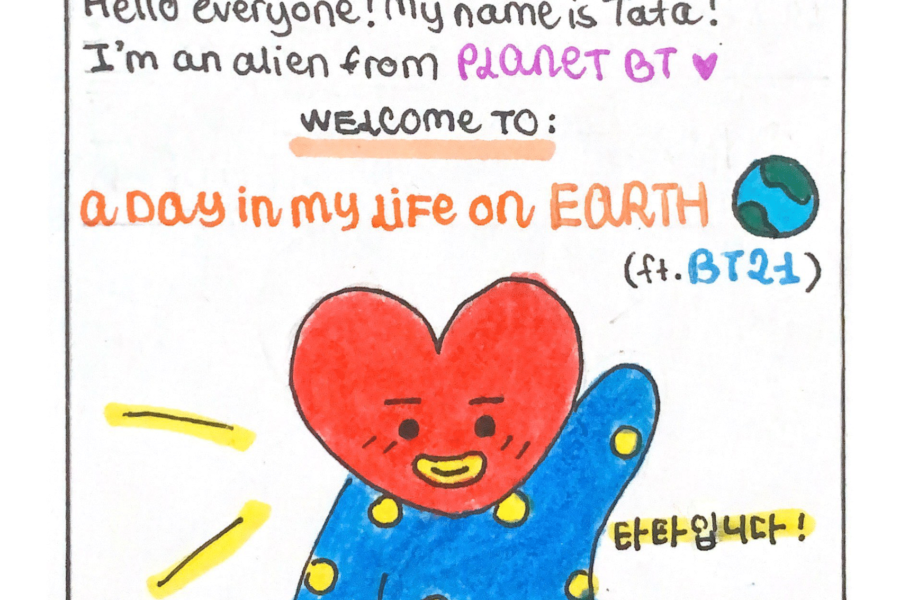 Hello everyone! My name is Tata!
I'm an alien from PLANET BT ♥
WELCOME TO:
a Day in my LiFe on EARTH
(ft. BT21)
타타입니다!